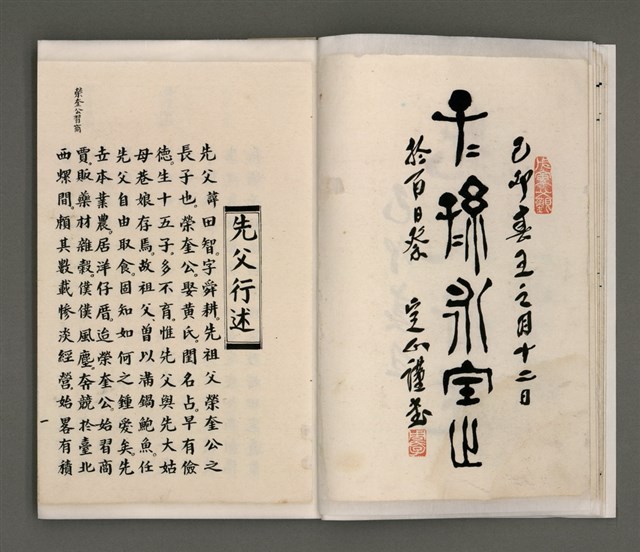 己卯春王之月十二日
子孫永宝之
於百日祭
定山謹署
先父行述
榮奎公習商
先父諱田智。字舜耕。先祖父榮奎公之
長子也。榮奎公娶黃氏。閨名占。早有儉
德。生十五子。多不育。惟先父與先大姑
母巷娘存焉。故祖父曾以滿鍋鮑魚。任
先父自由取食。固知如何之鍾愛矣。先
世本業農。居洋仔厝。迨榮奎公。始習商
賈。販藥材雜穀。僕僕風塵。奔競於臺北
西螺間。頼其數載慘淡經營。始畧有積
一